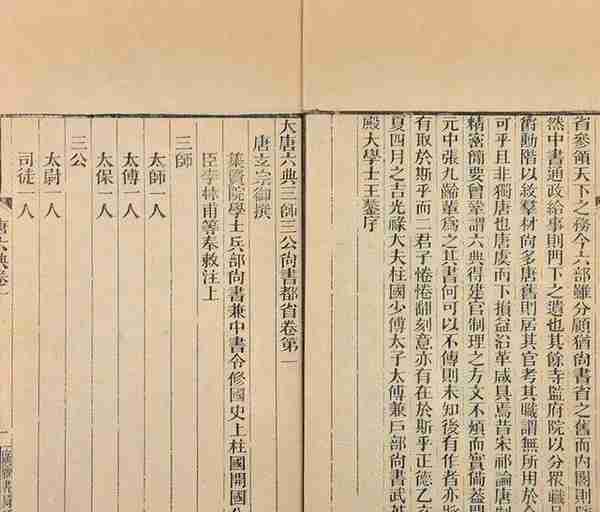 省參領天下之務今六部雖分顧猶尚書省之舊而內閣則
然中書通政給事則門下之遺也其餘寺監府院以分眾職
衡勳階以敘羣材尚多唐舊則居其官考其職謂無所用於
可乎且非獨唐也唐虞而下損益沿革咸具焉昔宋祁論唐制
精密簡要曾鞏謂六典得建官制理之方文不煩而實備蓋開
元中張九齡輩為之其書何可以不傳則未知後有作者亦
有取於斯乎而二君子惓惓翻刻意亦有在於斯乎正德乙
夏四月之吉光祿大夫柱國少傅太子太傅兼戶部尚書武英
殿大學士王鏊序
大唐六典三師三公尚書都省卷第一
唐玄宗御撰
集賢院學士兵部尚書兼中書令修國史上柱國開國公
臣李林甫等奉敕注上
三師
太師一人
太傅一人
太保一人
三公
太尉一人
司徒一人
唐六典卷一
一
廣雅書局